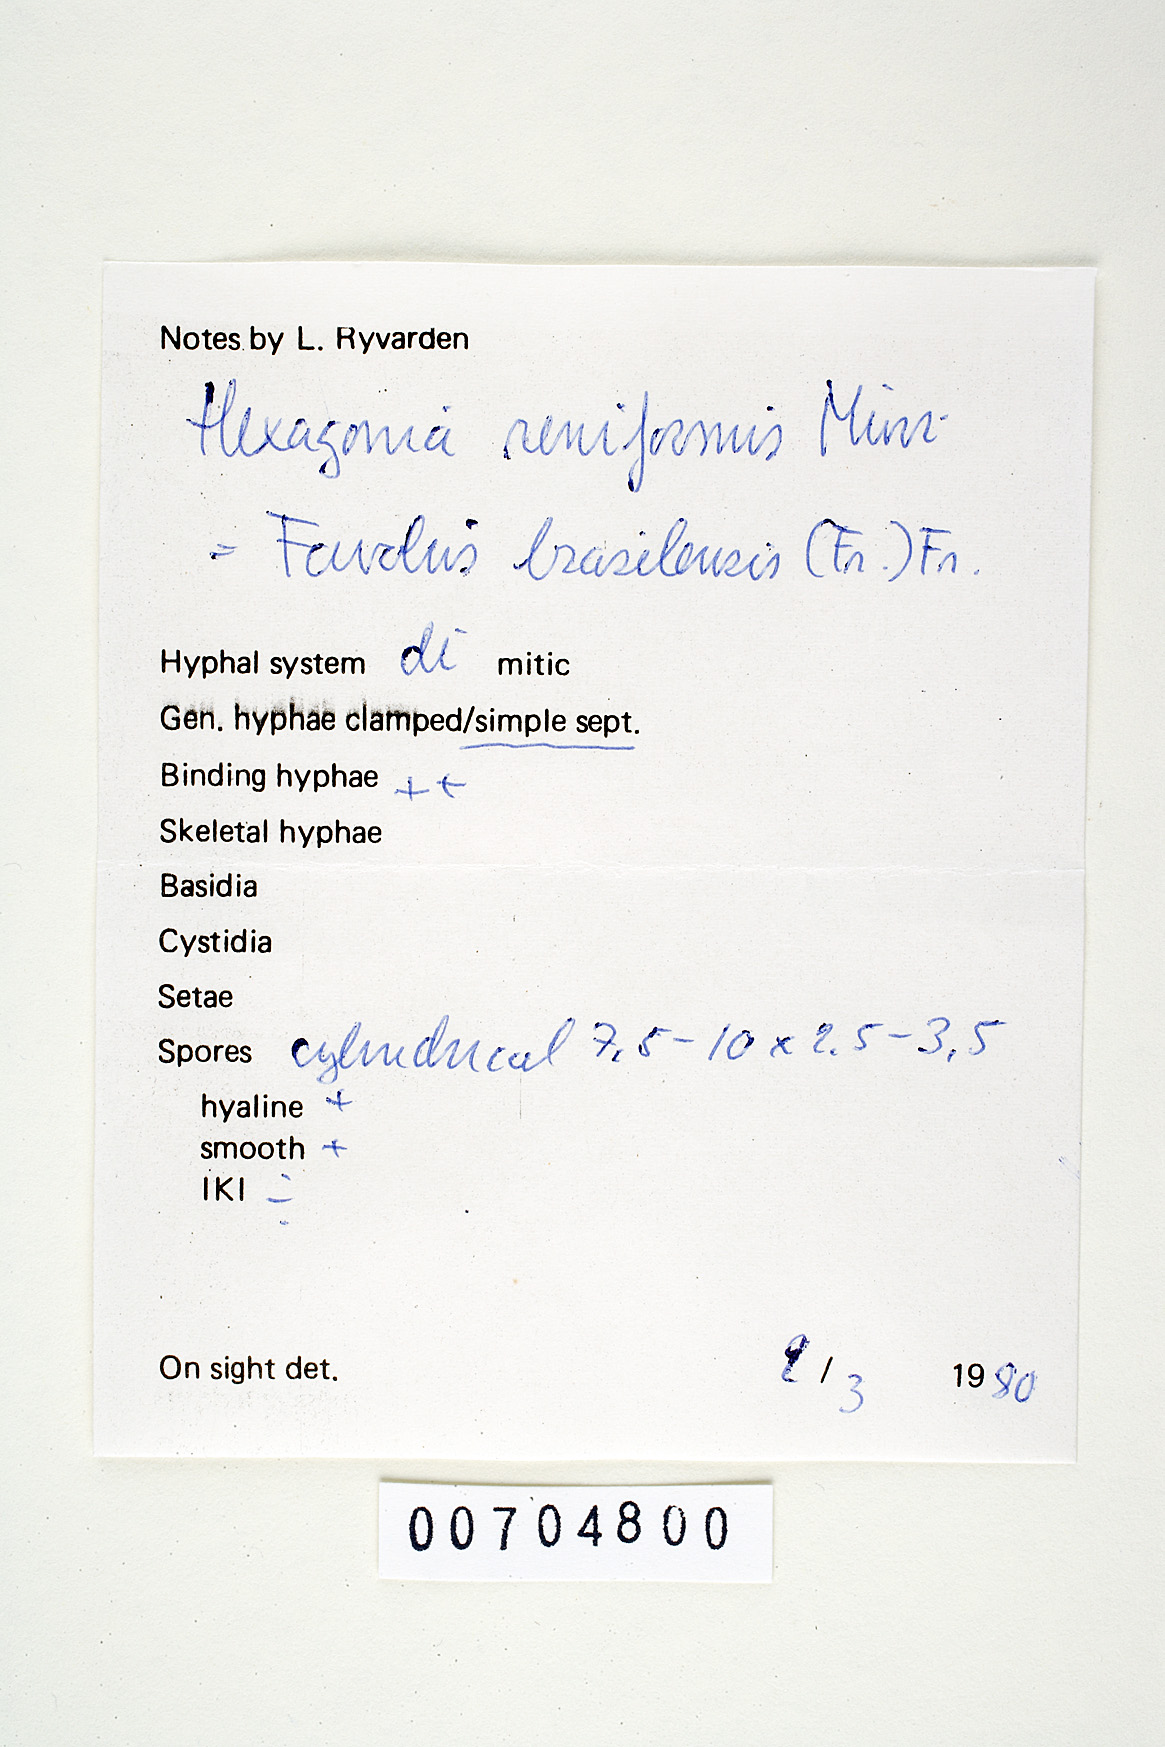 Notes by L. Ryvarden
Hexagonia reniformis Murr
= Favolus brasilensis (Fr.) Fr.
Hyphal system di mitic
Gen. hyphae clamped/simple sept.
Binding hyphae ++
Skeletal hyphae
Basidia
Cystidia
Setae
Spores cylindrical 7,5-10 x 2.5-3,5
hyaline +
smooth +
IKI -
On sight det. /3 1980
00704800